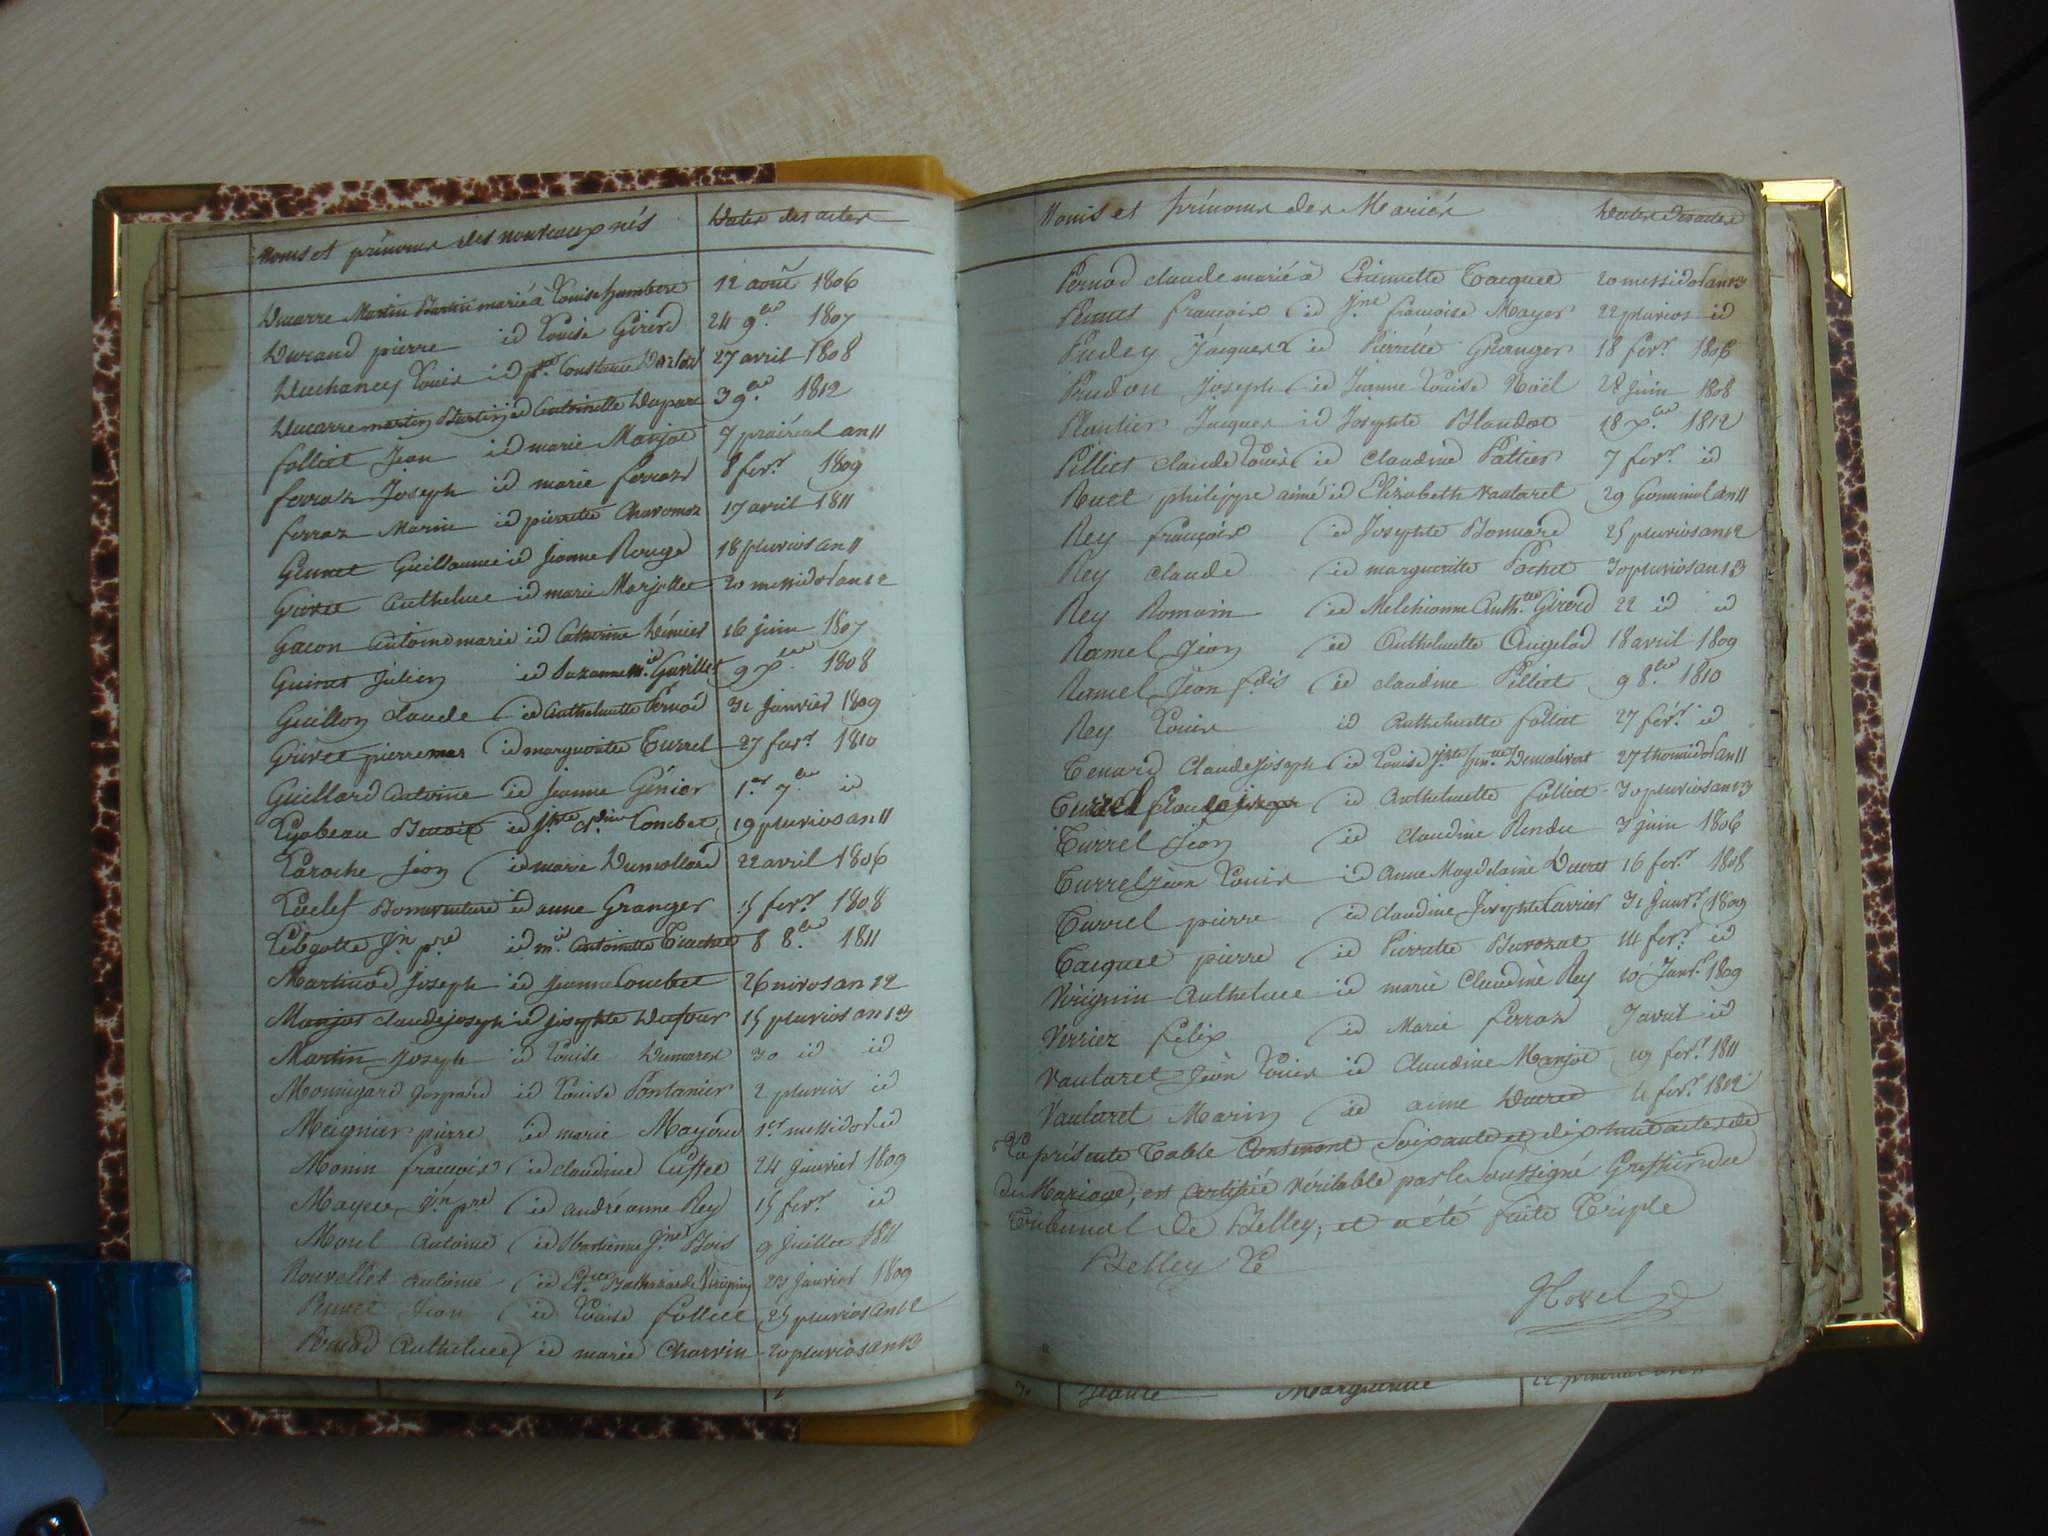 Noms et prénoms des nouveaux nés Dates des actes
Ducarre Martin Bastin marié à Louise humbert 12 août 1806
Durand pierre id Louise Girerd 24 9.bre 1807
Duchaney Louis id Constance 27 avril 1808
Ducarre martin id antoinette Duparc 3 9.bre 1812
folliet Jean id marie Manjot 7 prairial an 11
ferraz Joseph id marie ferraz 8 fevr. 1809
ferraz Marin id pierrette Charomoz 17 avril 1811
Guillaume id Jeanne Rouge 18 pluvios an 11
Grivet Anthelme id marie Marjollet 20 messidor an 12
Gacon antoine marie id Catherine 16 juin 1807
Guinet Julien id Suzanne m.ie Guvillet 9 x.bre 1808
Guillon claude id Anthelmette Pernod 31 janvier 1809
Grivet pierre mar id marguerite Turrel 27 fevr. 1810
Guillard antoine id Jeanne Génior 1.er 7.bre id
Lyabeau Benoit id Combet 19 pluvios an 11
Laroche Jean id marie Dumollard 22 avril 1806
Leclef Bonaventure id anne Granger 15 fevr. 1808
jn p.re id m.ie antoinette 8 8.bre 1811
Martinod Joseph id Jeanne Combet 26 nivos an 12
Manjot claude joseph id josephte Dufour 15 pluvios an 13
Martin Joseph id Louise Dumarex 30 id id
Monnigard gaspard id Louise Pontanier 2 pluvios id
Meignier pierre id marie Mayoud 1.er messidor id
Monin françois id claudine Cuffet 24 janvier 1809
Mayeu jn pre id andréanne Rey 15 fevr. id
Morel antoine id Bastienne jne Bois 9 Juillet 1811
Nouvellet antoine id Balthazarde Virignin 23 janvier 1809
Jean id Louise folliet 25 pluvios an 12
Pernod Anthelme id marie Charvin 20 pluviôs an 13
Noms et prénoms des Mariés Dates des actes
Pernod claude marié à Etiennette Tacquet 20 messidor an 13
françois id J.ne françoise Mayer 22 pluvios id
Pudey Jacques id Pierrette Granger 18 fevr. 1806
Prudon Joseph id Jeanne Louise Noël 28 juin 1808
Plantier Jacques id Josephte Blandot 18 x.bre 1812
Pilliet claude Louis id claudine Pattier 7 fevr. id
Ruet philippe aimé id Elizabeth vautaret 29 Germinal an 11
Rey françois id Josephte Bonnard 25 pluvios an 12
Rey claude id marguerite Pochet 30 pluvios an 13
Rey Romain id Melchionne Anth.tte Girerd 22 id id
Ramel Jean id Anthelmette Angelod 18 avril 1809
Ramel Jean f.ois id claudine Pilliet 9 8.bre 1810
Rey Louis id Anthelmette folliet 27 févr. id
Tenard Claude Joseph id Louise 27 thermidor an 11
Turrel Claude id Anthelmette folliet 30 pluvios an 13
Turrel Jean id claudine Rendu 3 juin 1806
Turrel jean Louis id anne Magdelaine Ducret 16 fevr. 1808
Turrel pierre id claudine Josephte Carrier 31 Janvr. 1809
Tacquet pierre id Pierrette Burozat 14 fevr. id
Virignin Anthelme id marie Claudine Rey 10 Janv. 1809
Verrier félix id Marie ferraz 7 avril id
Vautaret jean Louis id Claudine Manjot 19 fevr. 1811
Vautaret Marin id anne Ducret 4 fevr. 1812
La présente Table Contenant Soixante et dix huit actes de
de Mariage, est certifiée véritable par le Soussigné Greffier du
Tribunal de Belley, et a été faite Triple
Belley Le
Jeante Marguerite 22 prairial an 11